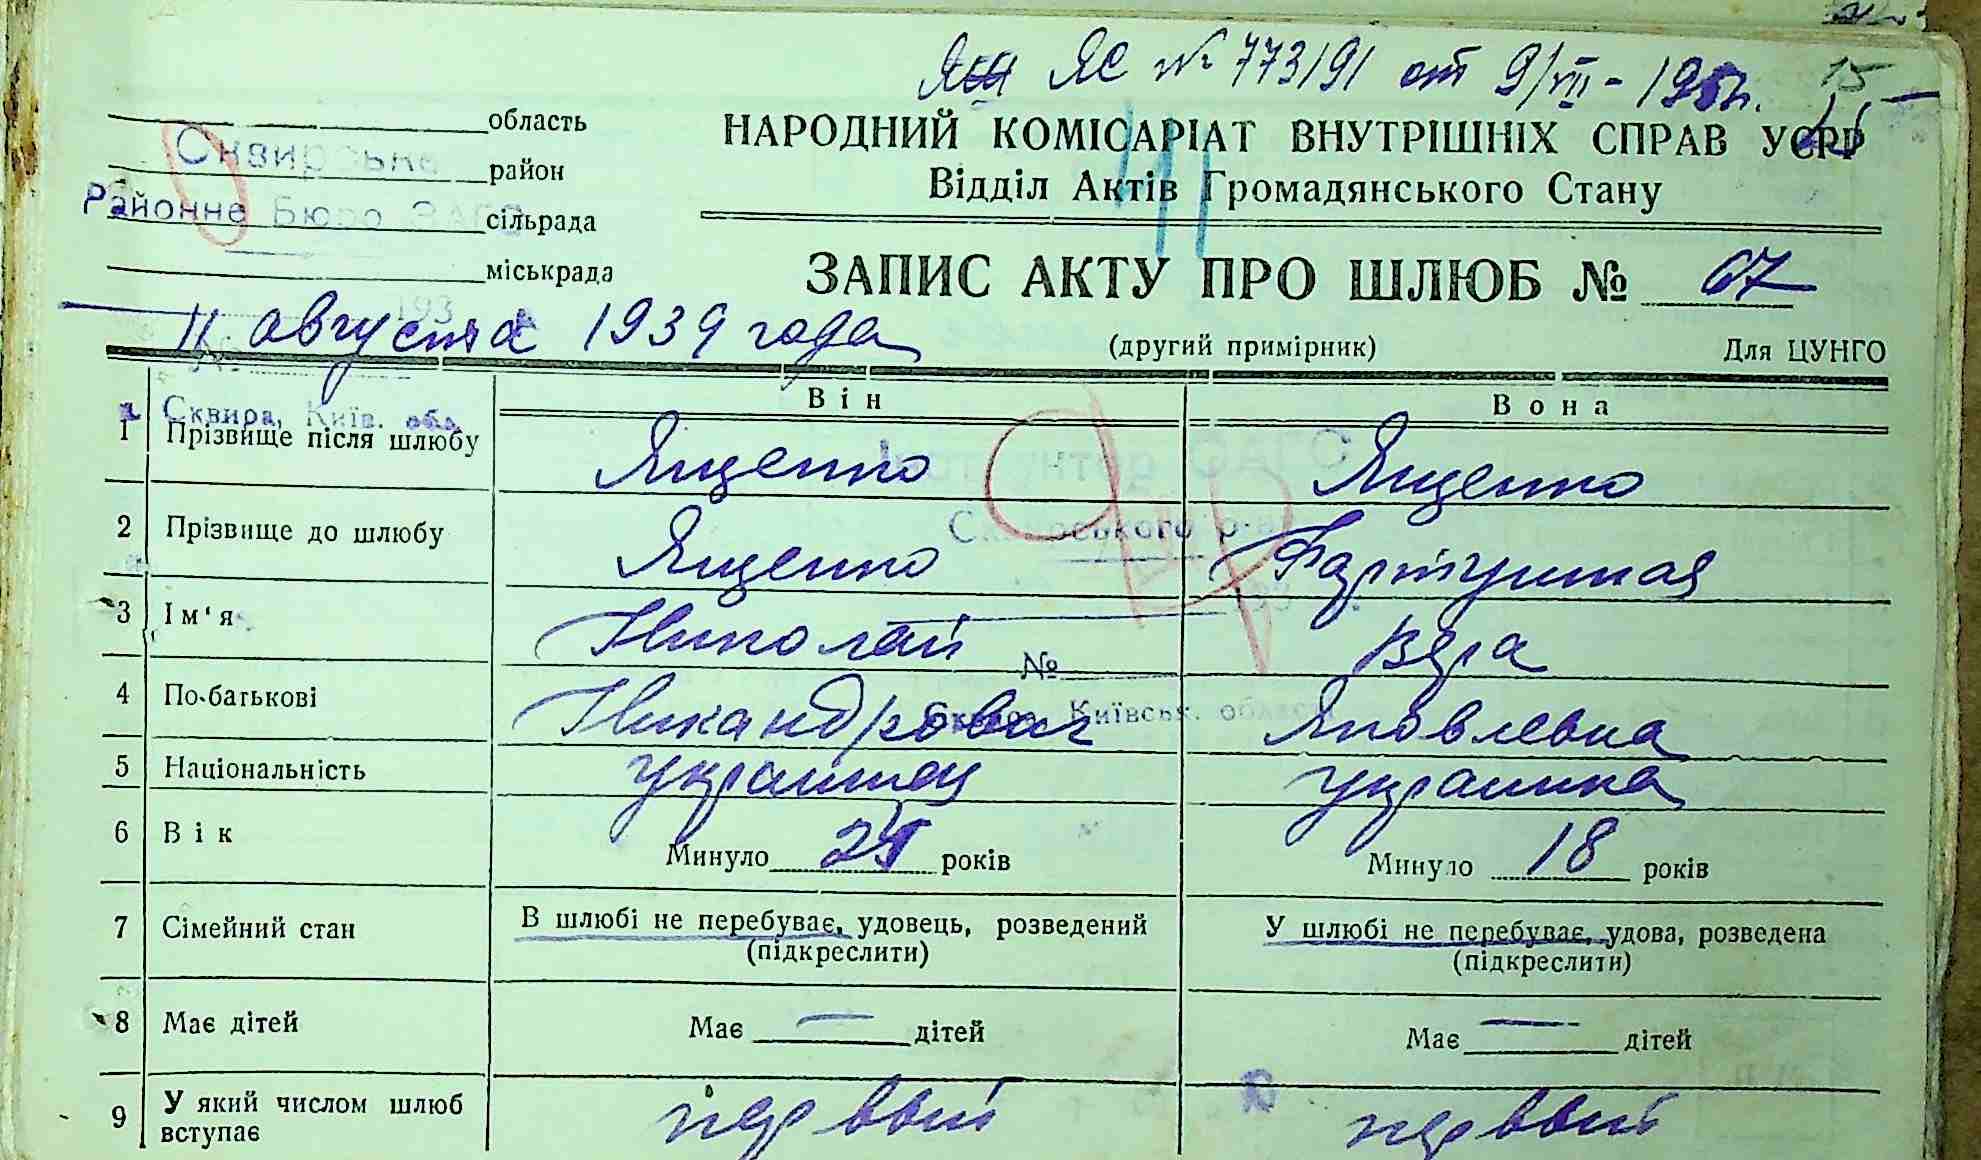 ЯС № 773191 от 9/VII - 195 г. 15
область
Сквирське
район
Районне Бюро ЗАГС
сільрада
міськрада
НАРОДНИЙ КОМІСАРІАТ ВНУТРІШНІХ СПРАВ УСРР
Відділ Актів Громадянського Стану
ЗАПИС АКТУ ПРО ШЛЮБ № 67
193
11 августа 1939 года
(другий примірник) Для ЦУНГО
Він Вона
Сквира, Київ. обл.
1 Прізвище після шлюбу Ященко Ященко
2 Прізвище до шлюбу Ященко Фартушная
Сквирського р-н
3 Ім'я Николай Вера
№
4 По-батькові Никандрович Яковлевна
Сквира, Київськ. області
5 Національність украинец украинка
6 Вік Минуло 25 років Минуло 18 років
7 Сімейний стан В шлюбі не перебуває, удовець, розведений У шлюбі не перебуває, удова, розведена
(підкреслити) (підкреслити)
8 Має дітей Має — дітей Має — дітей
9 У який числом шлюб вступає первый первый